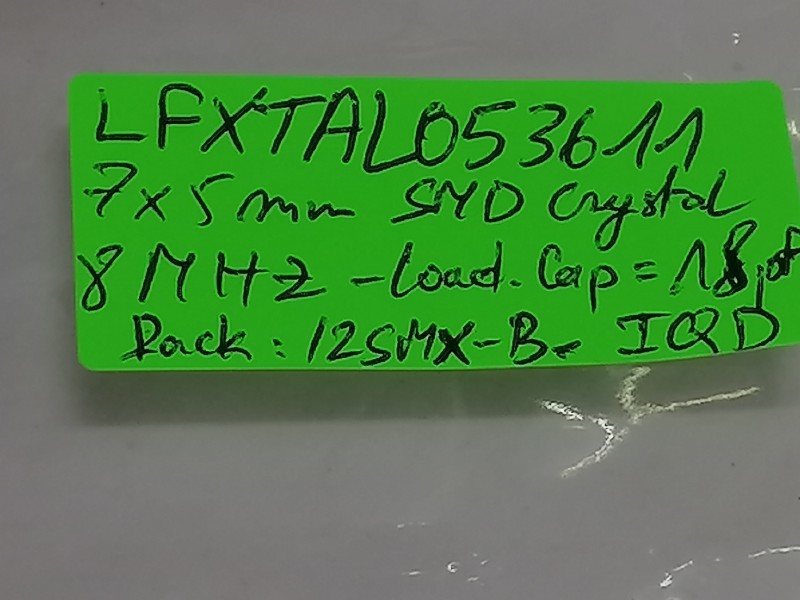 LFXTAL053611
7x5mm SMD Crystal
8MHz - Load. Cap = 18pF
Pack: 12SMX-B. IQD